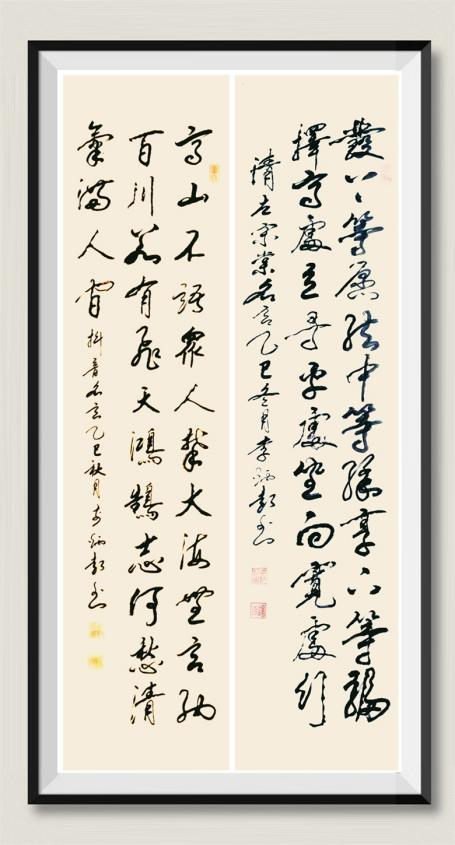 發上等愿結中等緣享下等福
擇高處立尋平處坐向寬處行
清左宗棠名言乙巳冬月李炳書
高山不語眾人攀大海無言納
百川若有飛天鴻鵠志何愁清
氣滿人間
抖音名言乙巳秋月李炳書